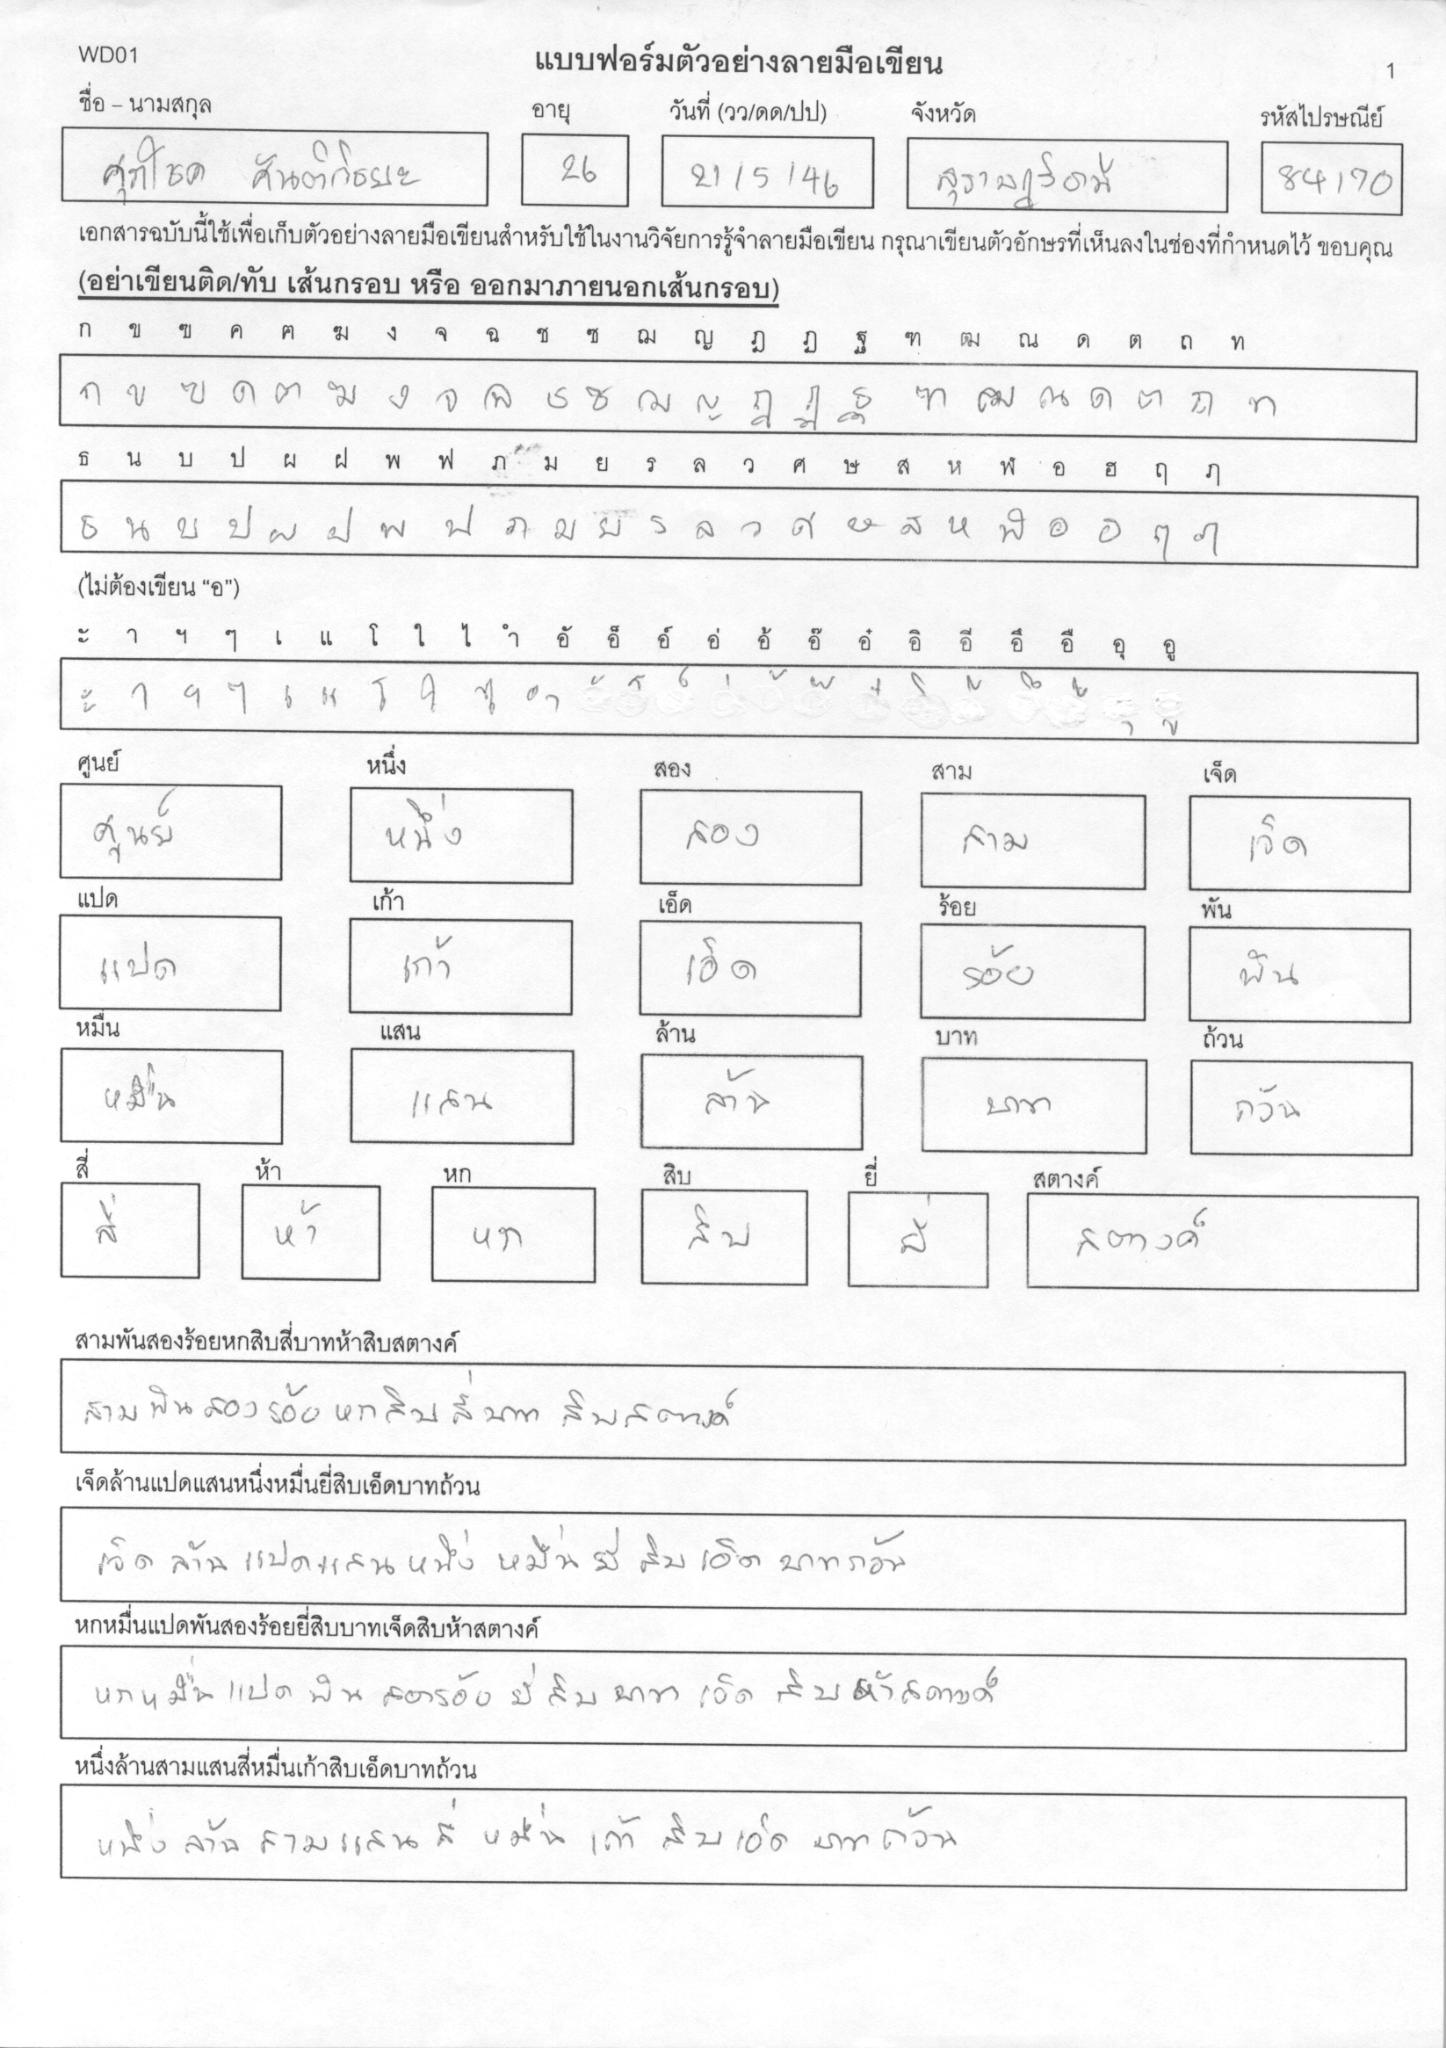 WD01 แบบฟอร์มตัวอย่างลายมือเขียน 1
ชื่อ – นามสกุล อายุ วันที่ (วว/ดด/ปป) จังหวัด รหัสไปรษณีย์
ศุภโชค 26 21/5/46 สุราษฎร์ธานี 84170
เอกสารฉบับนี้ใช้เพื่อเก็บตัวอย่างลายมือเขียนสำหรับใช้ในงานวิจัยการรู้จำลายมือเขียน กรุณาเขียนตัวอักษรที่เห็นลงในช่องที่กำหนดไว้ ขอบคุณ
(อย่าเขียนติด/ทับ เส้นกรอบ หรือ ออกมาภายนอกเส้นกรอบ)
ก ข ฃ ค ฅ ฆ ง จ ฉ ช ซ ฌ ญ ฎ ฏ ฐ ฑ ฒ ณ ด ต ถ ท
ก ข ฃ ค ฅ ฆ ง จ ฉ ช ซ ฌ ญ ฎ ฏ ฐ ฑ ฒ ณ ด ต ถ ท
ธ น บ ป ผ ฝ พ ฟ ภ ม ย ร ล ว ศ ษ ส ห ฬ อ ฮ ฤ ฦ
ธ น บ ป ผ ฝ พ ฟ ภ ม ย ร ล ว ศ ษ ส ห ฬ อ ฮ ฤ ฦ
(ไม่ต้องเขียน “อ”)
ะ า ฯ ๆ เ แ โ ใ ไ ำ อั อ็ อ์ อ่ อ้ อ๊ อ๋ อิ อี อึ อื อุ อู
ะ า ฯ ๆ เ แ โ ใ ไ ำ ั ็ ์ ่ ้ ๊ ๋ ิ ี ึ ื ุ ู
ศูนย์ หนึ่ง สอง สาม เจ็ด
ศูนย์ หนึ่ง สอง สาม เจ็ด
แปด เก้า เอ็ด ร้อย พัน
แปด เก้า เอ็ด ร้อย พัน
หมื่น แสน ล้าน บาท ถ้วน
หมื่น แสน ล้าน บาท ถ้วน
สี่ ห้า หก สิบ ยี่ สตางค์
สี่ ห้า หก สิบ ยี่ สตางค์
สามพันสองร้อยหกสิบสี่บาทห้าสิบสตางค์
สามพันสองร้อยหกสิบสี่บาท สิบสตางค์
เจ็ดล้านแปดแสนหนึ่งหมื่นยี่สิบเอ็ดบาทถ้วน
เจ็ด ล้าน แปดแสน หนึ่ง หมื่น ยี่ สิบ เอ็ด บาทถ้วน
หกหมื่นแปดพันสองร้อยยี่สิบบาทเจ็ดสิบห้าสตางค์
หกหมื่น แปด พัน สองร้อย ยี่ สิบ บาท เจ็ด สิบ ห้าสตางค์
หนึ่งล้านสามแสนสี่หมื่นเก้าสิบเอ็ดบาทถ้วน
หนึ่ง ล้าน สามแสน สี่ หมื่น เก้า สิบ เอ็ด บาทถ้วน